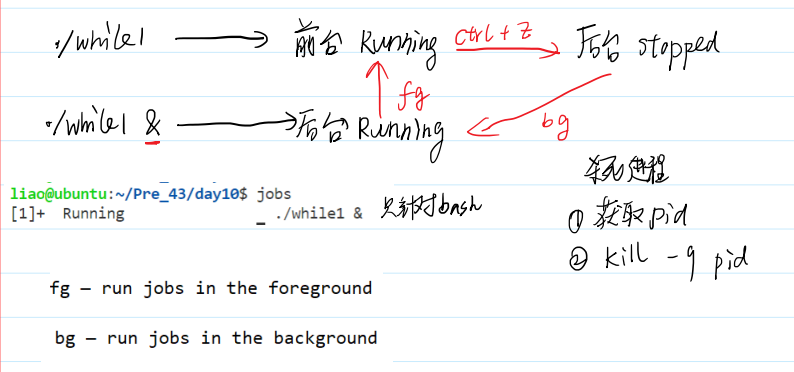 ./while1 → 前台 Running ctrl+Z 后台 stopped
fg
./while1 & → 后台 Running bg
杀死进程
liao@ubuntu:~/Pre_43/day10$ jobs
[1]+ Running _ ./while1 & 只针对bash
① 获取pid
② kill -9 pid
fg – run jobs in the foreground
bg – run jobs in the background